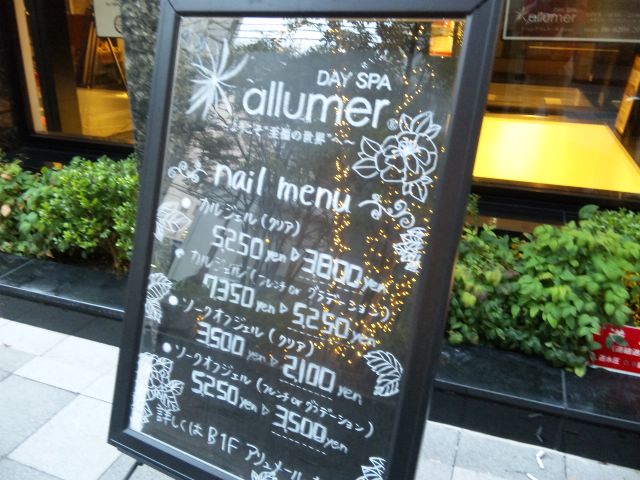 DAY SPA
allumer
～ようこそ"至福の世界"へ～
nail menu
カルジェル (クリア)
5250 yen 3800 yen
カルジェル (フレンチ or グラデーション)
7350 yen 5,250 yen
ソークオフジェル (クリア)
3,500 yen 2,100 yen
ソークオフジェル (フレンチ or グラデーション)
5,250 yen 3,500 yen
詳しくは B1F アリュメール
allumer